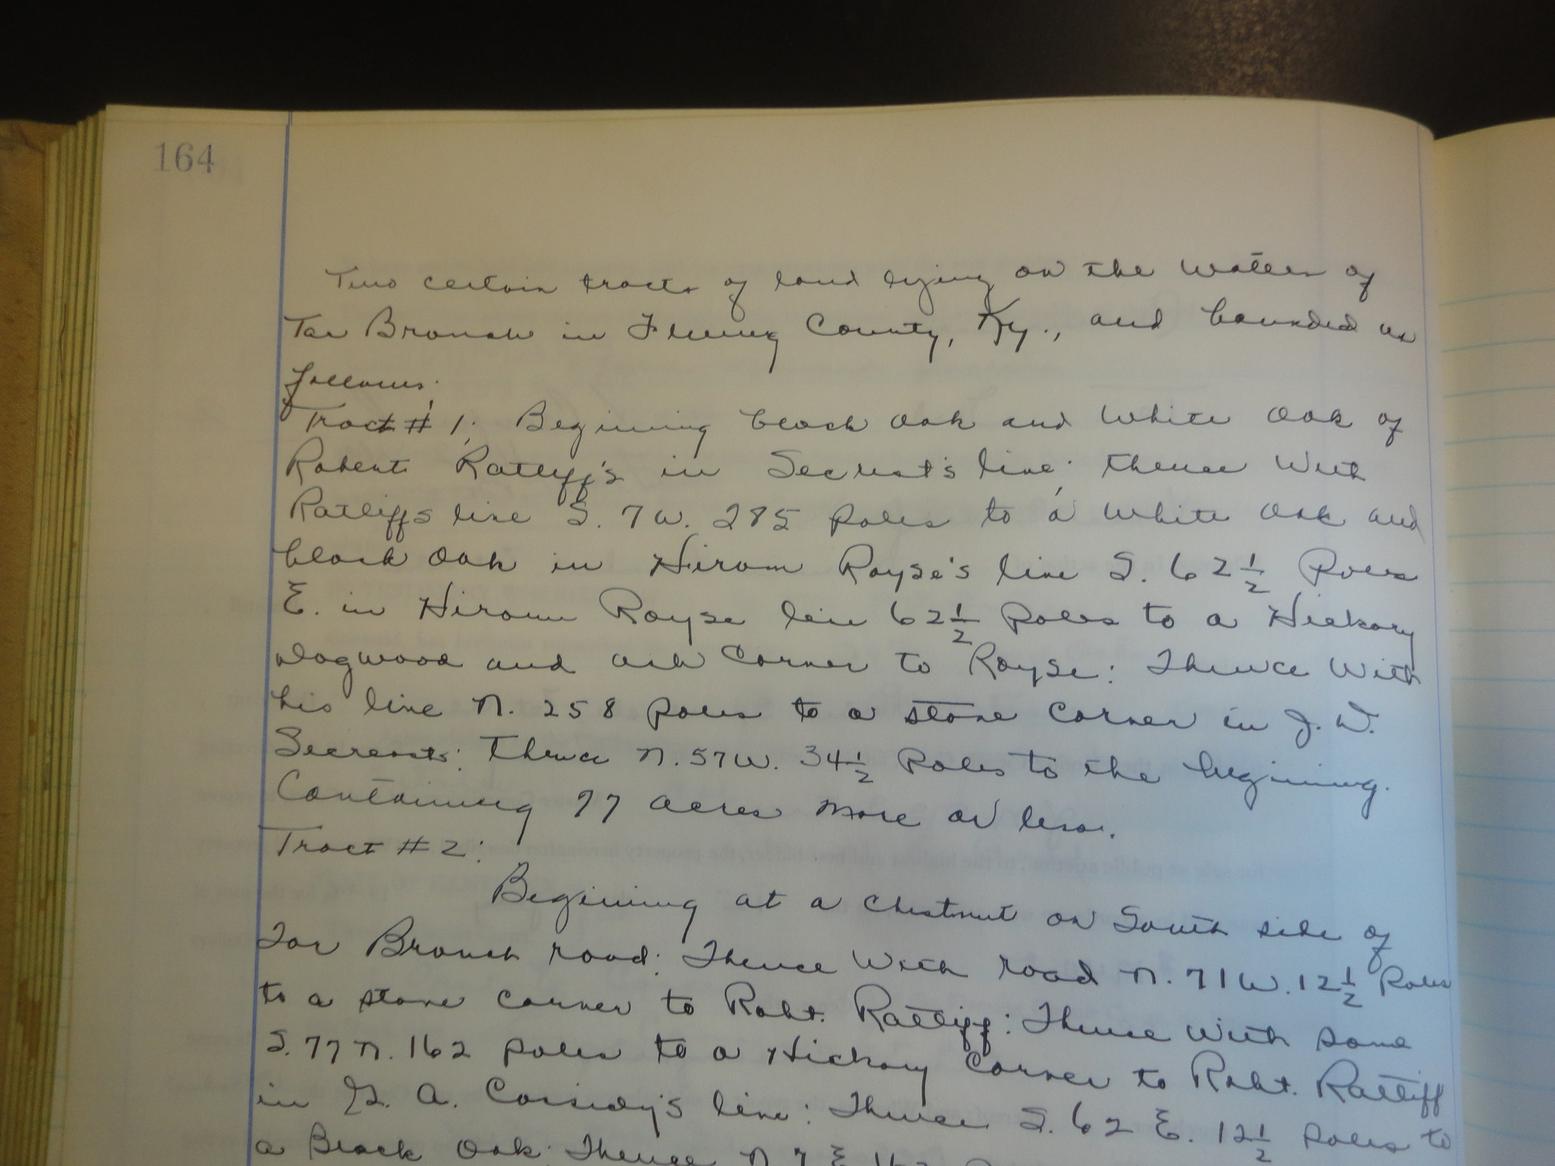 164
Two certain tracts of land lying on the waters of
Tar Branch in Fleming County, Ky., and bounded as
follows:
Tract # 1: Begining black oak and white oak of
Robert Ratliff's in Secrest's line; thence with
Ratliffs line S. 7 W. 285 poles to a white oak and
black oak in Hiram Royse's line S. 62 1/2 poles
E. in Hiram Royse line 62 1/2 poles to a Hickory
dogwood and ash corner to Royse: Thence with
his line N. 258 poles to a stone corner in J. W.
Secrests: Thence N. 57 W. 34 1/2 poles to the begining.
Containing 77 acres more or less.
Tract # 2:
Begining at a chestnut on South side of
Tar Branch road: Thence with road N. 71 W. 12 1/2 poles
to a stone corner to Robt. Ratliff: Thence with same
S. 77 N. 162 poles to a Hickory corner to Robt. Ratliff
in G. A. Cassidy's line: Thence S. 62 E. 12 1/2 poles to
a Black Oak: Thence N. 7 E.